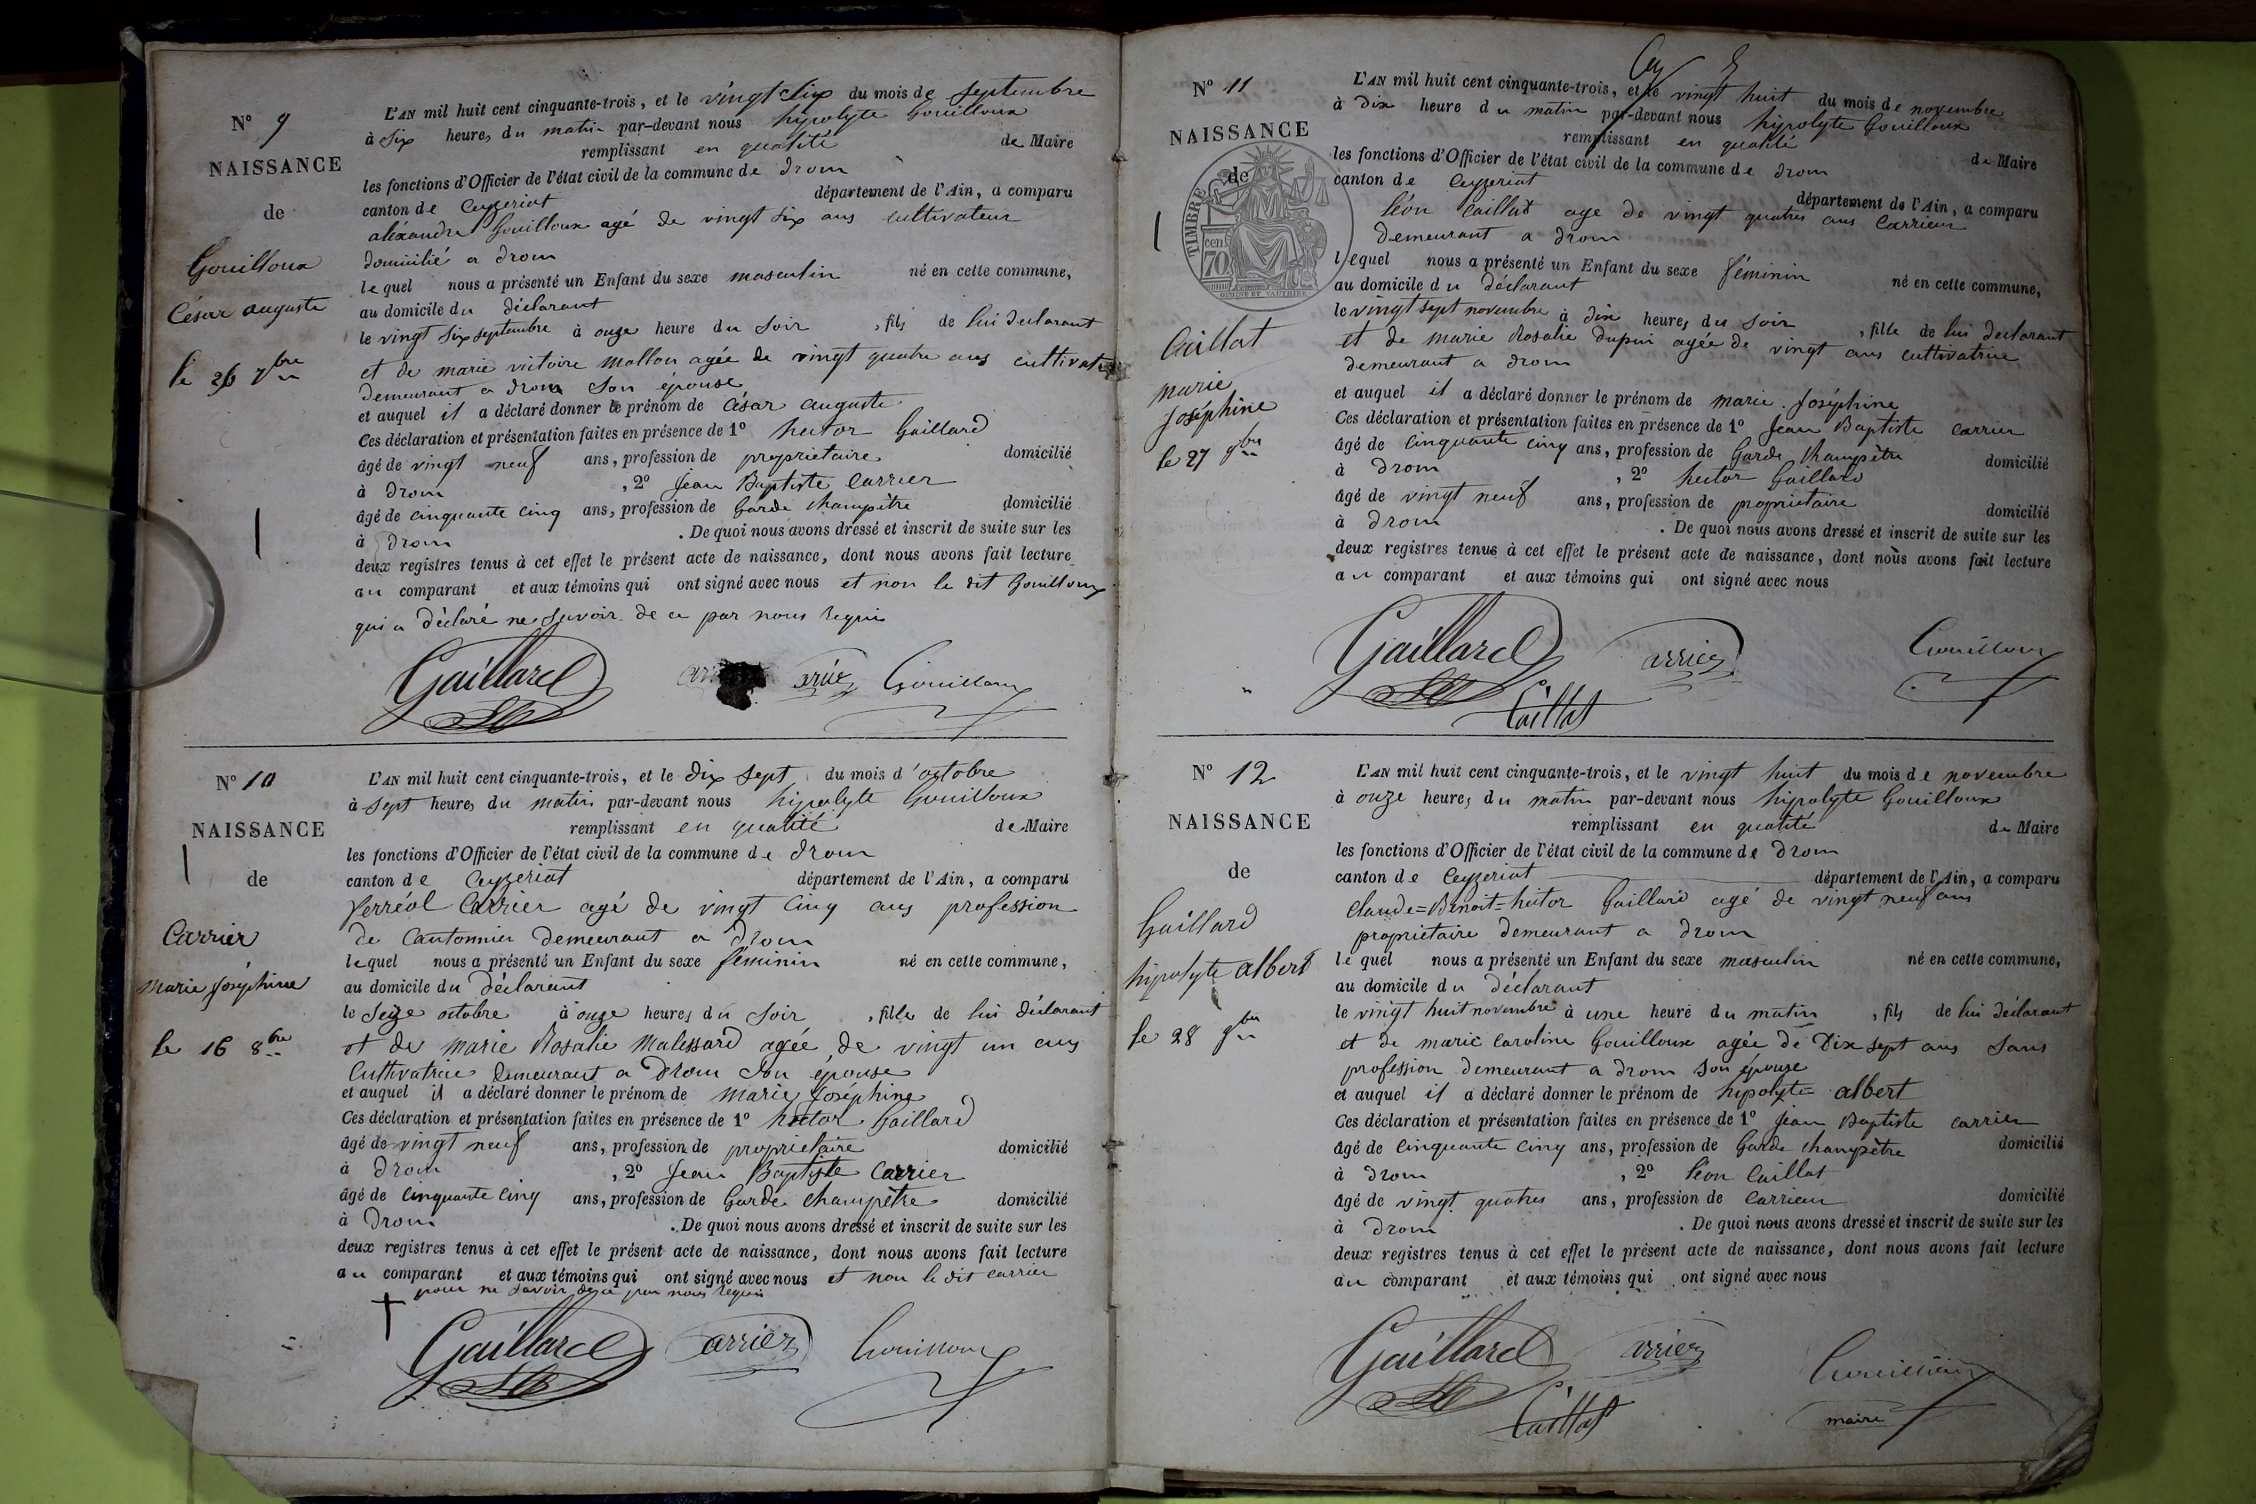 N° 9
NAISSANCE
de
Gouilloux
César auguste
le 26 7bre
L'AN mil huit cent cinquante-trois, et le vingt Six du mois de Septembre
à Six heures du matin par-devant nous hypolyte Gouilloux
remplissant en qualité de Maire
les fonctions d'Officier de l'état civil de la commune de Drom
canton de Ceyzeriat département de l'Ain, a comparu
aléxandre Gouilloux agé de vingt six ans cultivateur
domicilié a Drom
lequel nous a présenté un Enfant du sexe masculin né en cette commune,
au domicile du déclarant
le vingt Six septembre à onze heure du Soir, fils de lui declarant
et de marie victoire mallon agée de vingt quatre ans
demeurant a Drom Son épouse
et auquel il a déclaré donner le prénom de César auguste
Ces déclaration et présentation faites en présence de 1° hector Gaillard
âgé de vingt neuf ans, profession de propriétaire domicilié
à Drom, 2° Jean Baptiste Carrier
âgé de cinquante cinq ans, profession de Garde champètre domicilié
à Drom. De quoi nous avons dressé et inscrit de suite sur les
deux registres tenus à cet effet le présent acte de naissance, dont nous avons fait lecture
au comparant et aux témoins qui ont signé avec nous et non le dit Gouilloux
qui a déclaré ne Savoir de ce par nous requis
Gaillard arrier Gouilloux
N° 10
NAISSANCE
de
Carrier
Marie Joséphine
le 16 8bre
L'AN mil huit cent cinquante-trois, et le Dix Sept du mois d'octobre
à Sept heures du matin par-devant nous hipolyte Gouilloux
remplissant en qualité de Maire
les fonctions d'Officier de l'état civil de la commune de Drom
canton de Ceyzeriat département de l'Ain, a comparu
ferréol Carrier agé de vingt Cinq ans profession
de Cantonnier Demeurant a Drom
lequel nous a présenté un Enfant du sexe féminin né en cette commune,
au domicile du Déclarant
le Seize octobre à onze heures du Soir, fille de lui déclarant
et de marie Rosalie Malessard agée de vingt un ans
Cultivatrice Demeurant a Drom Son épouse
et auquel il a déclaré donner le prénom de Marie Joséphine
Ces déclaration et présentation faites en présence de 1° hector Gaillard
âgé de vingt neuf ans, profession de propriétaire domicilié
à Drom, 2° Jean Baptiste Carrier
âgé de Cinquante Cinq ans, profession de Garde champètre domicilié
à Drom. De quoi nous avons dressé et inscrit de suite sur les
deux registres tenus à cet effet le présent acte de naissance, dont nous avons fait lecture
au comparant et aux témoins qui ont signé avec nous et non le dit carrier
pour ne Savoir de ce par nous requis
Gaillard arrier Gouilloux
N° 11
NAISSANCE
de
TIMBRE
70 cent
Caillat
marie
Joséphine
le 27 9bre
L'AN mil huit cent cinquante-trois, et le vingt huit du mois de novembre
à Dix heure du matin par-devant nous hipolyte Gouilloux
remplissant en qualité de Maire
les fonctions d'Officier de l'état civil de la commune de Drom
canton de Ceyzeriat département de l'Ain, a comparu
léon Caillat age de vingt quatres ans Carrieur
Demeurant a Drom
lequel nous a présenté un Enfant du sexe féminin né en cette commune,
au domicile du Déclarant
le vingt sept novembre à dix heures du Soir, fille de lui declarant
et de marie Rosalie Dupui agée de vingt ans cultivatrice
demeurant a Drom
et auquel il a déclaré donner le prénom de marie Joséphine
Ces déclaration et présentation faites en présence de 1° Jean Baptiste Carrier
âgé de Cinquante cinq ans, profession de Garde champètre domicilié
à Drom, 2° hector Gaillard
âgé de vingt neuf ans, profession de propriétaire domicilié
à Drom. De quoi nous avons dressé et inscrit de suite sur les
deux registres tenus à cet effet le présent acte de naissance, dont nous avons fait lecture
au comparant et aux témoins qui ont signé avec nous
Gaillard arrier Gouilloux
Caillat
N° 12
NAISSANCE
de
Gaillard
hipolyte albert
le 28 9bre
L'AN mil huit cent cinquante-trois, et le vingt huit du mois de novembre
à onze heures du matin par-devant nous hipolyte Gouilloux
remplissant en qualité de Maire
les fonctions d'Officier de l'état civil de la commune de Drom
canton de Ceyzeriat département de l'Ain, a comparu
Claude=Benoit=hector Gaillard agé de vingt neuf ans
propriétaire Demeurant a Drom
lequel nous a présenté un Enfant du sexe masculin né en cette commune,
au domicile du Déclarant
le vingt huit novembre à une heure du matin, fils de lui déclarant
et de marie Caroline Gouilloux agée de Dix sept ans Sans
profession Demeurant a Drom Son épouse
et auquel il a déclaré donner le prénom de hipolyte=albert
Ces déclaration et présentation faites en présence de 1° Jean Baptiste carrier
âgé de Cinquante Cinq ans, profession de Garde champètre domicilié
à Drom, 2° léon Caillat
âgé de vingt quatres ans, profession de Carrieur domicilié
à Drom. De quoi nous avons dressé et inscrit de suite sur les
deux registres tenus à cet effet le présent acte de naissance, dont nous avons fait lecture
au comparant et aux témoins qui ont signé avec nous
Gaillard arrier Gouilloux
Caillat maire